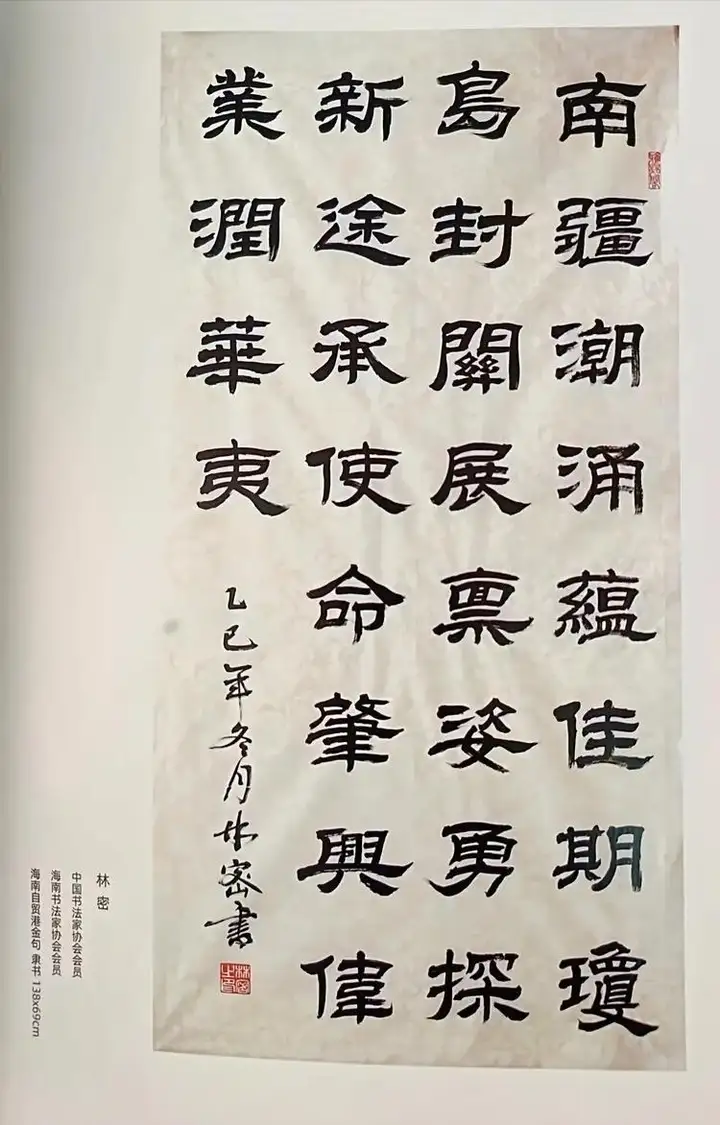 南疆潮涌蕴佳期瓊
島封關展禀姿勇探
新途承使命肇興偉
業潤華夷
乙巳年冬月林密書
林密
中国书法家协会会员
海南书法家协会会员
海南自贸港金句 隶书 138x69cm